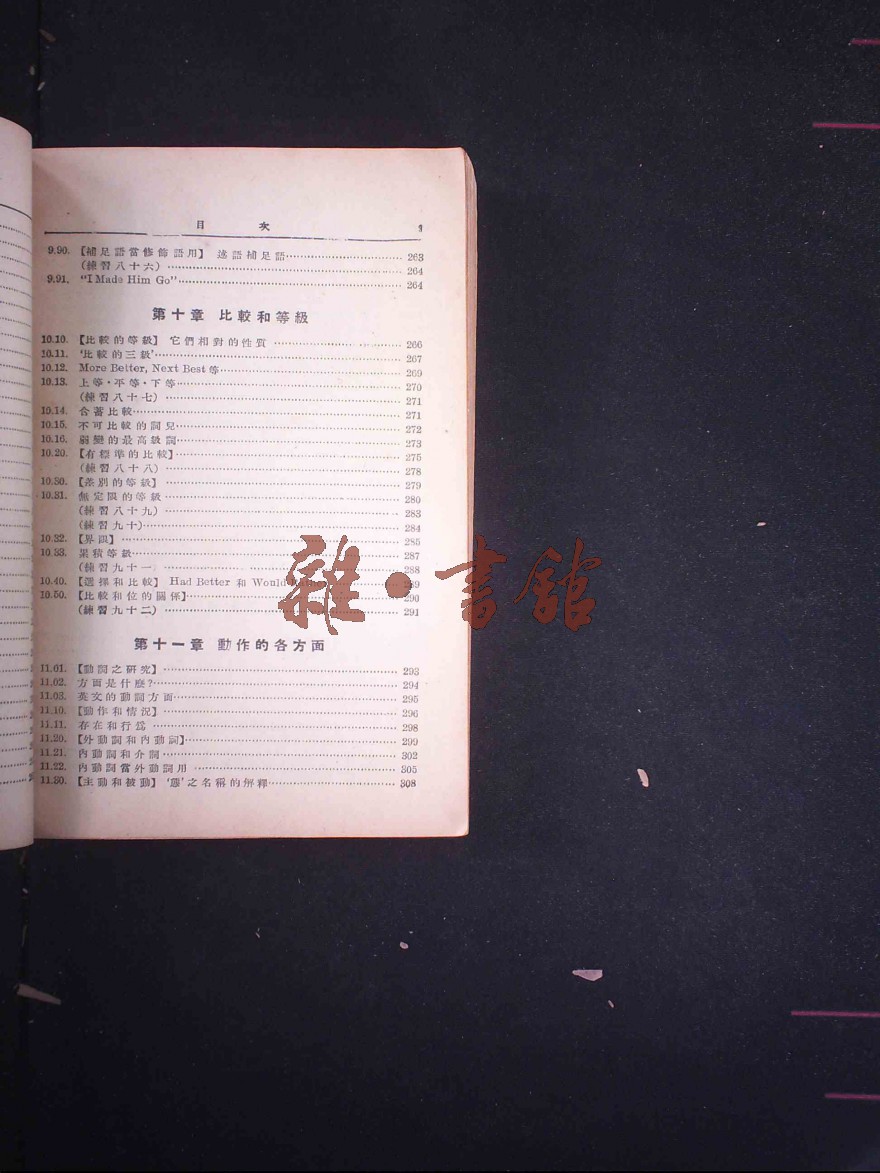 目 次 3
9.90. 【補足語當修飾語用】 述語補足語 263
(練習八十六) 264
9.91. "I Made Him Go" 264
第十章 比較和等級
10.10. 【比較的等級】 它們相對的性質 266
10.11. '比較的三級' 267
10.12. More Better, Next Best 等 269
10.13. 上等·平等·下等 270
(練習八十七) 271
10.14. 含蓄比較 271
10.15. 不可比較的詞兒 272
10.16. 弱變的最高級詞 273
10.20. 【有標準的比較】 275
(練習八十八) 278
10.30. 【差別的等級】 279
10.31. 無定限的等級 280
(練習八十九) 283
(練習九十) 284
10.32. 【界限】 285
10.33. 累積等級 287
(練習九十一) 288
10.40. 【選擇和比較】 Had Better 和 Would Rather 289
10.50. 【比較和位的關係】 290
(練習九十二) 291
第十一章 動作的各方面
11.01. 【動詞之研究】 293
11.02. 方面是什麼? 294
11.03. 英文的動詞方面 295
11.10. 【動作和情況】 296
11.11. 存在和行爲 298
11.20. 【外動詞和內動詞】 299
11.21. 內動詞和介詞 302
11.22. 內動詞當外動詞用 305
11.30. 【主動和被動】 之名稱的解釋 308
雜·書館